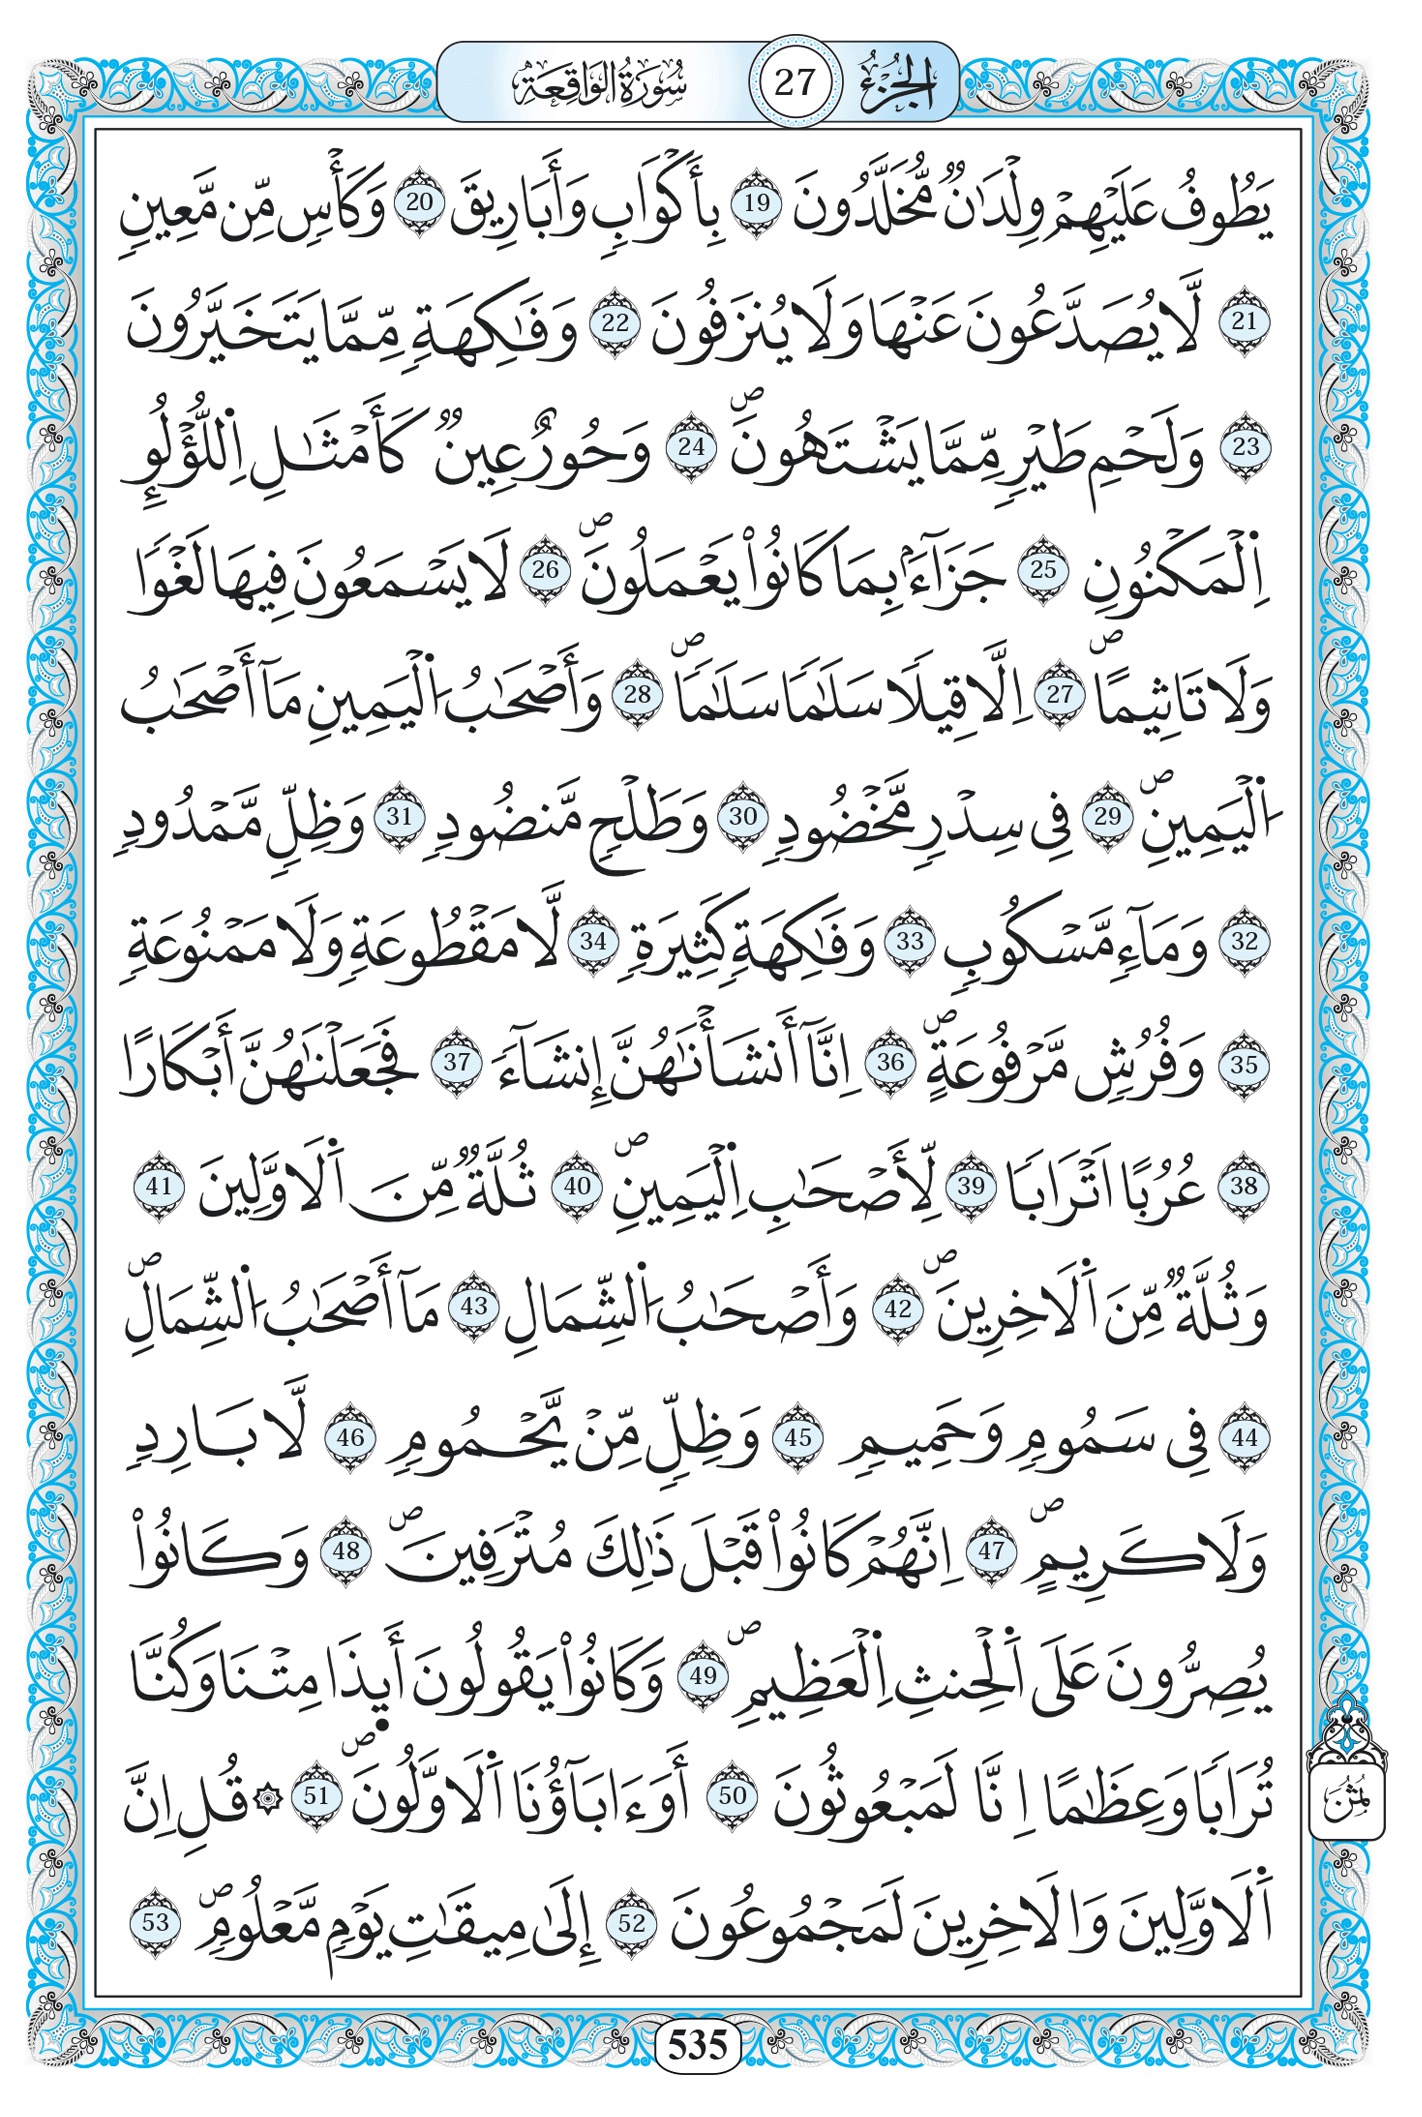 الجُزْءُ 27 سُورَةُ الوَاقِعَةِ
يَطُوفُ عَلَيْهِمْ وِلْدَٰنٌ مُّخَلَّدُونَ 19 بِأَكْوَابٍ وَأَبَارِيقَ 20 وَكَأْسٍ مِّن مَّعِينٍ
21 لَّا يُصَدَّعُونَ عَنْهَا وَلَا يُنزَفُونَ 22 وَفَٰكِهَةٍ مِّمَّا يَتَخَيَّرُونَ
23 وَلَحْمِ طَيْرٍ مِّمَّا يَشْتَهُونَ ص 24 وَحُورٌ عِينٌ كَأَمْثَٰلِ اِ۬للُّؤْلُوِٕ
اِ۬لْمَكْنُونِ 25 جَزَآءَۢ بِمَا كَانُواْ يَعْمَلُونَ ص 26 لَا يَسْمَعُونَ فِيهَا لَغْوٗا
وَلَا تَاثِيماً ص 27 اِلَّا قِيلٗا سَلَٰمٗا سَلَٰمٗا ص 28 وَأَصْحَٰبُ اُ۬لْيَمِينِ مَآ أَصْحَٰبُ
اُ۬لْيَمِينِ ص 29 فِى سِدْرٖ مَّخْضُودٖ 30 وَطَلْحٖ مَّنضُودٖ 31 وَظِلّٖ مَّمْدُودٖ
32 وَمَآءٖ مَّسْكُوبٖ 33 وَفَٰكِهَةٖ كَثِيرَةٖ 34 لَّا مَقْطُوعَةٖ وَلَا مَمْنُوعَةٖ
35 وَفُرُشٖ مَّرْفُوعَةٍ ص 36 اِنَّآ أَنشَأْنَٰهُنَّ إِنشَآءٗ 37 فَجَعَلْنَٰهُنَّ أَبْكَاراً
38 عُرُباً اَتْرَاباٗ 39 لِّأَصْحَٰبِ اِ۬لْيَمِينِ ص 40 ثُلَّةٌ مِّنَ اَ۬لَاوَّلِينَ 41
وَثُلَّةٌ مِّنَ اَ۬لَاخِرِينَ ص 42 وَأَصْحَٰبُ اُ۬لشِّمَالِ 43 مَآ أَصْحَٰبُ اُ۬لشِّمَالِ ص
44 فِى سَمُومٖ وَحَمِيمٖ 45 وَظِلّٖ مِّنْ يَّحْمُومٖ 46 لَّا بَارِدٖ
وَلَا كَرِيمٍ ص 47 اِنَّهُمْ كَانُواْ قَبْلَ ذَٰلِكَ مُتْرَفِينَ ص 48 وَكَانُواْ
يُصِرُّونَ عَلَى اَ۬لْحِنثِ اِ۬لْعَظِيمِ ص 49 وَكَانُواْ يَقُولُونَ أَىِٕذَا مِتْنَا وَكُنَّا
تُرَاباٗ وَعِظَٰماً اِنَّا لَمَبْعُوثُونَ 50 أَوَءَابَآؤُنَا اَ۬لَاوَّلُونَ ص 51 ۞ قُلِ اِنَّ
اَ۬لَاوَّلِينَ وَالَاخِرِينَ لَمَجْمُوعُونَ 52 إِلَىٰ مِيقَٰتِ يَوْمٖ مَّعْلُومٖ ص 53
ثُمُنٌ
535